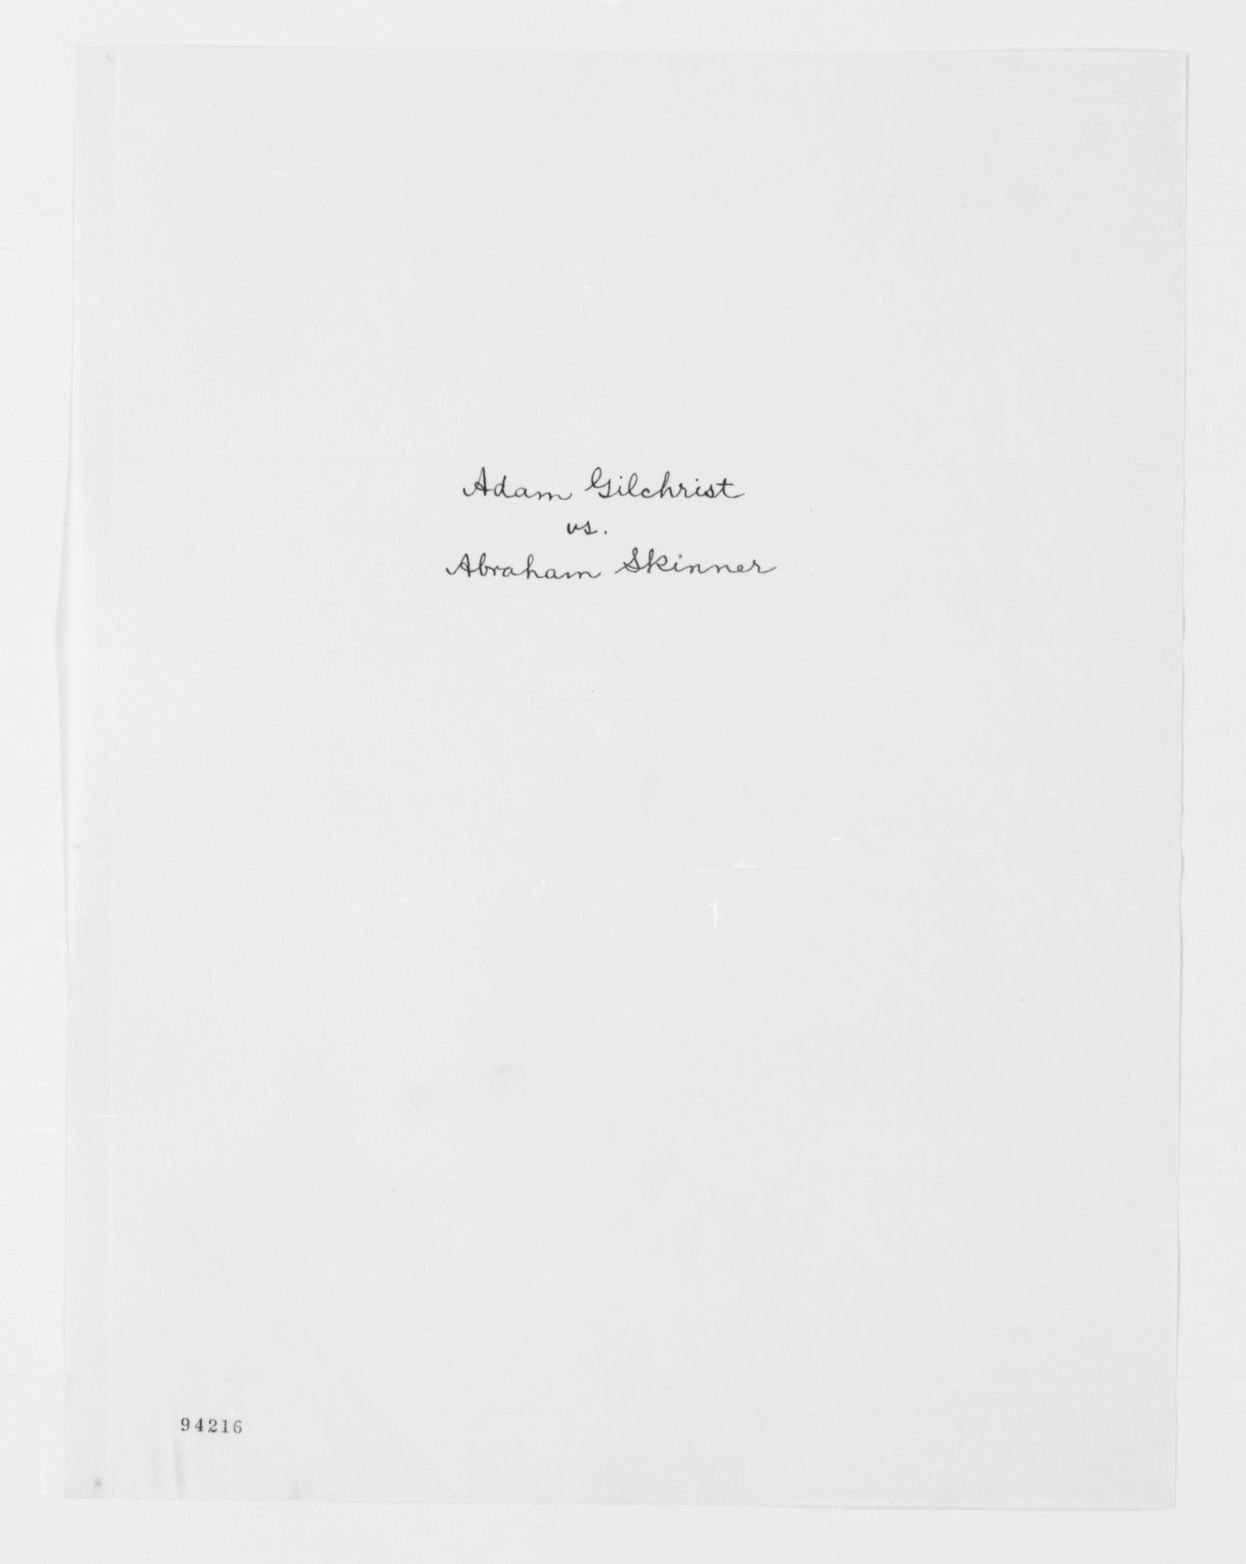 Adam Gilchrist
vs.
Abraham Skinner
94216